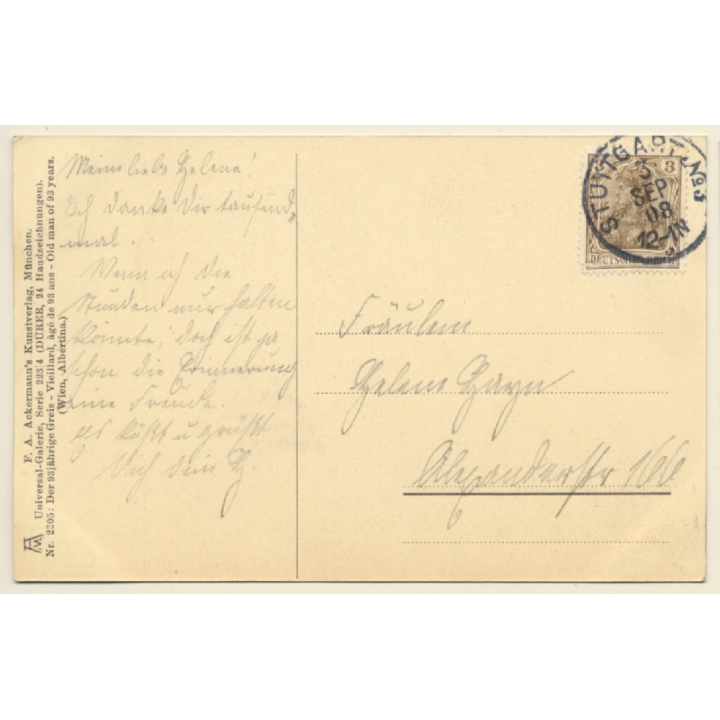 Meine liebe Helene!
Ich danke Dir tausend„
mal.
Wenn ich die
Stunden nur halten
könnte, doch ist ja
schon die Erinnerung
eine Freude.
Es küßt u grüßt
Dich Dein H.
F. A. Ackermann's Kunstverlag, München.
Universal-Galerie, Serie 223/4 (DÜRER, 24 Handzeichnungen).
Nr. 2205: Der 93jährige Greis - Vieillard, âgé de 93 ans - Old man of 93 years.
(Wien, Albertina.)
STUTTGART No 3
3
SEP
08
12-1N
3
DEUTSCHES REICH
Fräulein
Helene Hayn
Alexanderstr 166